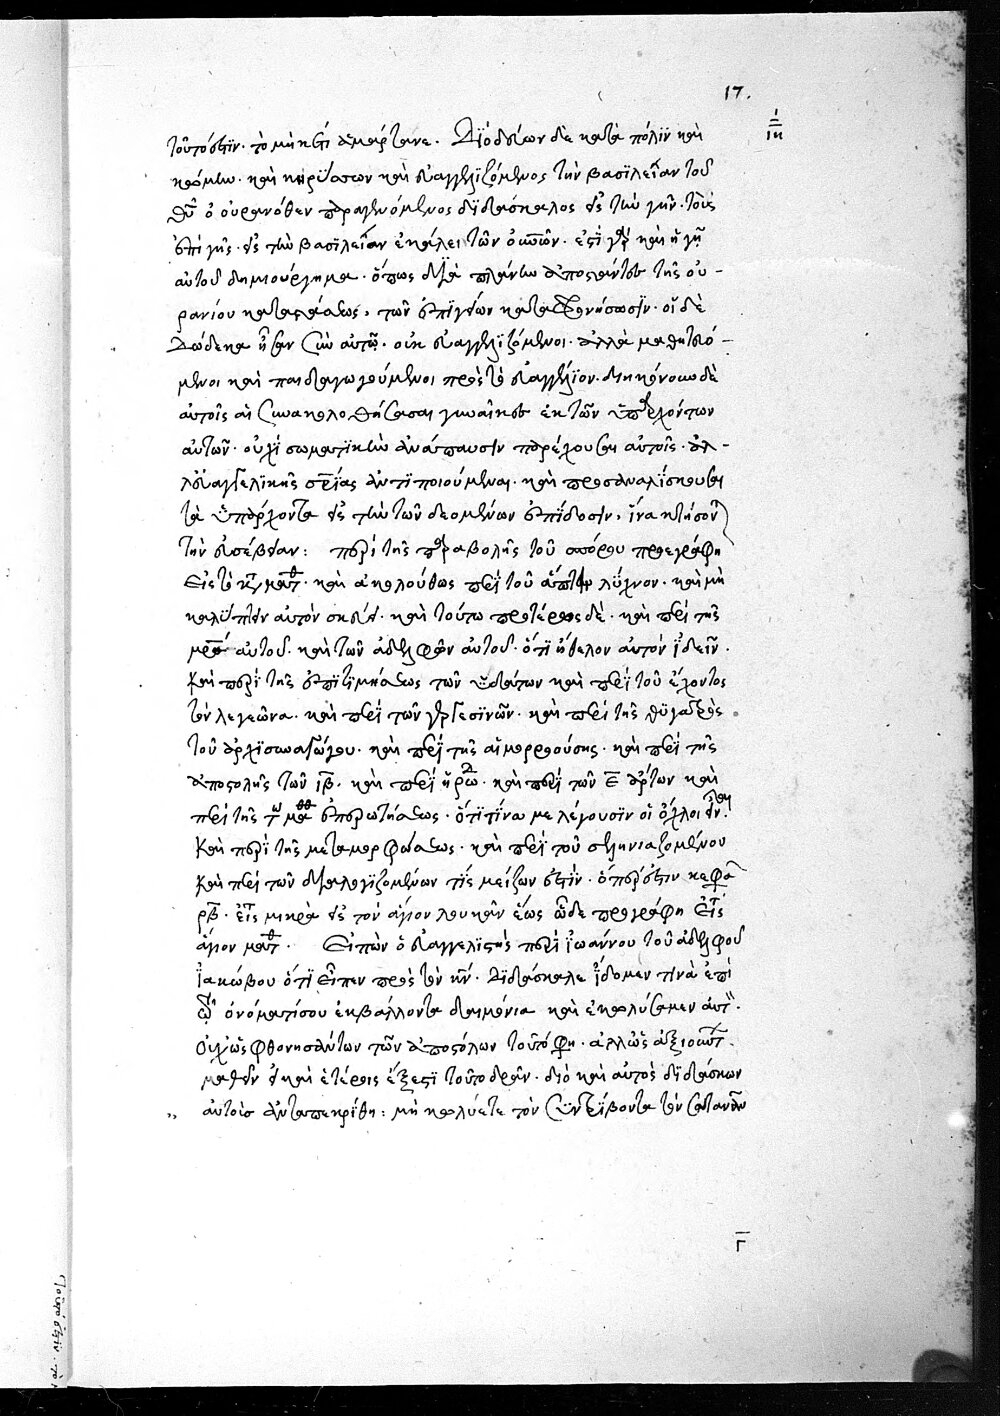 17.
ιη
τουτέστιν· τὸ μηκέτι ἁμάρτανε. Διοδεύων δὲ κατὰ πόλιν καὶ
κώμην· καὶ κηρύσσων καὶ εὐαγγελιζόμενος τὴν βασιλείαν τοῦ
θῦ ὁ οὐρανόθεν παραγενόμενος διδάσκαλος εἰς τὴν γῆν· τοὺς
ἐπὶ γῆς· εἰς τὴν βασιλείαν ἐκάλει τῶν οὐνῶν· ἐστὶ γὰρ καὶ ἡ γῆ
αὐτοῦ δημιούργημα· ὅπως διὰ πλάνην ἀποστάντες τῆς οὐ-
ρανίου καταστάσεως, τῶν ἐπιγείων καταφρονήσωσιν· οἱ δὲ
δώδεκα ἦσαν σὺν αὐτῷ· οὐκ εὐαγγελιζόμενοι· ἀλλὰ μαθητευό-
μενοι καὶ παιδαγωγούμενοι πρὸς τὸ εὐαγγέλιον· διηκόνουν δὲ
αὐτοῖς αἱ συνακολουθήσασαι γυναῖκες ἐκ τῶν ὑπαρχόντων
αὐτῶν· οὐχὶ σωματικὴν ἀνάπαυσιν παρέχουσαι αὐτοῖς· ἀλ-
λ' εὐαγγελικῆς σρίας ἀντιποιούμεναι· καὶ προσαναλίσκουσαι
τὰ ὑπάρχοντα εἰς τὴν τῶν δεομένων ἐπίδοσιν, ἵνα κτήσον
τὴν εὐσέβειαν: περὶ τῆς παραβολῆς τοῦ σπόρου προεγράφη
εἰς τὸ κτ μαθ· καὶ ἀκολούθως περὶ τοῦ ἅπτειν λύχνον· καὶ μὴ
καλύπτειν αὐτὸν σκεύει· καὶ τοῦτο προτέρως δὲ· καὶ περὶ τῆς
μρσ αὐτοῦ· καὶ τῶν ἀδελφῶν αὐτοῦ· ὅτι ἤθελον αὐτὸν ἰδεῖν.
καὶ περὶ τῆς ἐπιτιμήσεως τῶν ὑδάτων καὶ περὶ τοῦ ἔχοντος
τὸν λεγεῶνα· καὶ περὶ τῶν γεργεσινῶν· καὶ περὶ τῆς θυγατρὸς
τοῦ ἀρχισυναγώγου· καὶ περὶ τῆς αἱμορροούσης· καὶ περὶ τῆς
ἀποστολῆς τῶν ιβ· καὶ περὶ ἡρώ· καὶ περὶ τῶν ε ἄρτων καὶ
περὶ τῆς τ μαθ ἐπερωτήσεως· ὅτι τίνα με λέγουσιν οἱ ὄχλοι εἶν.
καὶ περὶ τῆς μεταμορφώσεως· καὶ περὶ τοῦ σεληνιαζομένου
καὶ περὶ τῶν διαλογιζομένων τίς μείζων ἐστίν· ὅπερ ἐστιν κεφα
ρβ· εἰς μικρὰ εἰς τὸν ἅγιον λουκᾶν ἕως ὧδε προγράφη εἰς
ἅγιον ματθ. Εἰπὼν ὁ εὐαγγελιστὴς περὶ ἰωάννου τοῦ ἀδελφοῦ
ἰακώβου ὅτι εἶπεν πρὸς τὸν κν· διδάσκαλε ἴδομεν τινὰ ἐπὶ
τῷ ὀνόματί σου ἐκβάλλοντα δαιμόνια καὶ ἐκωλύσαμεν αὐτ·
οὐχ ὡς φθονησάντων τῶν ἀποστόλων τοῦτό φη· ἀλλ' ὡς ἀξιούντ.
μαθεῖν εἰ καὶ ἑτέροις ἔξεστι τοῦτο δρᾶν· διὸ καὶ αὐτὸς διδάσκων
αὐτοὺς ἀνταπεκρίθη: μὴ κωλύετε τὸν συντρίβοντα τὸν σατανᾶν
Γ